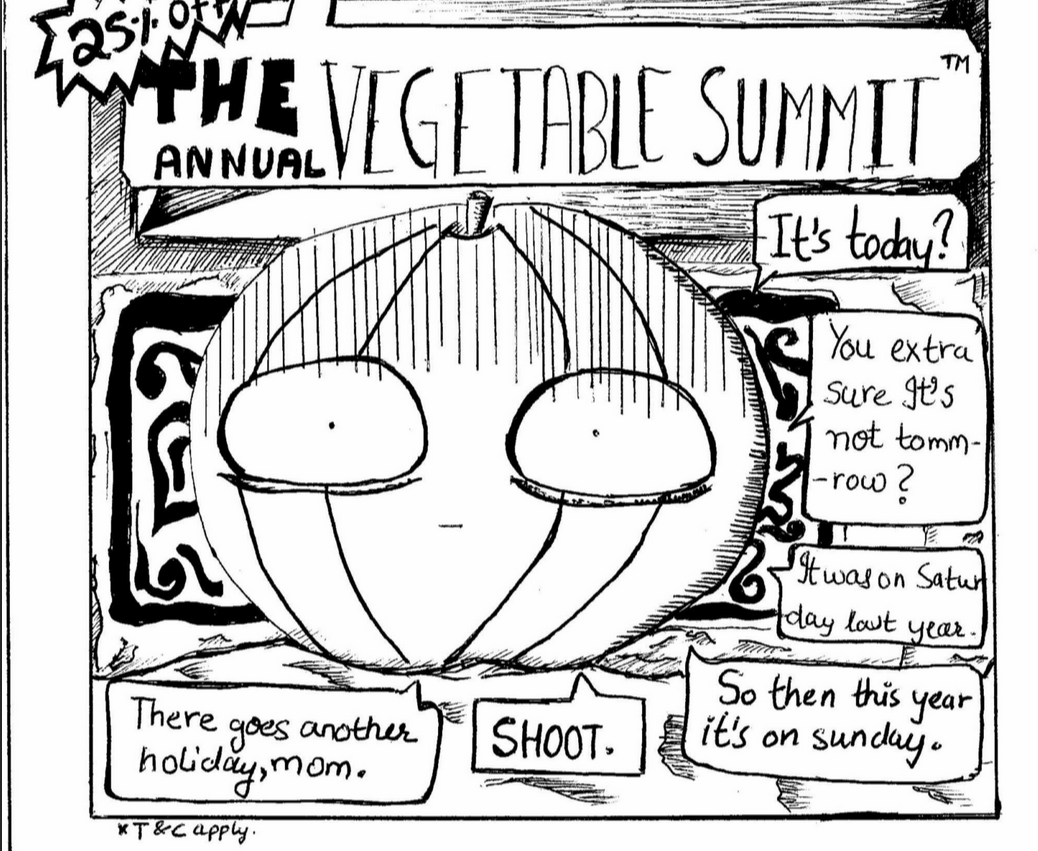 25% Off
THE
ANNUAL VEGETABLE SUMMIT™
It's today?
You extra
sure It's
not tomm-
-row?
It was on Satur
day last year.
So then this year
it's on sunday.
SHOOT.
There goes another
holiday, mom.
*T & C apply.